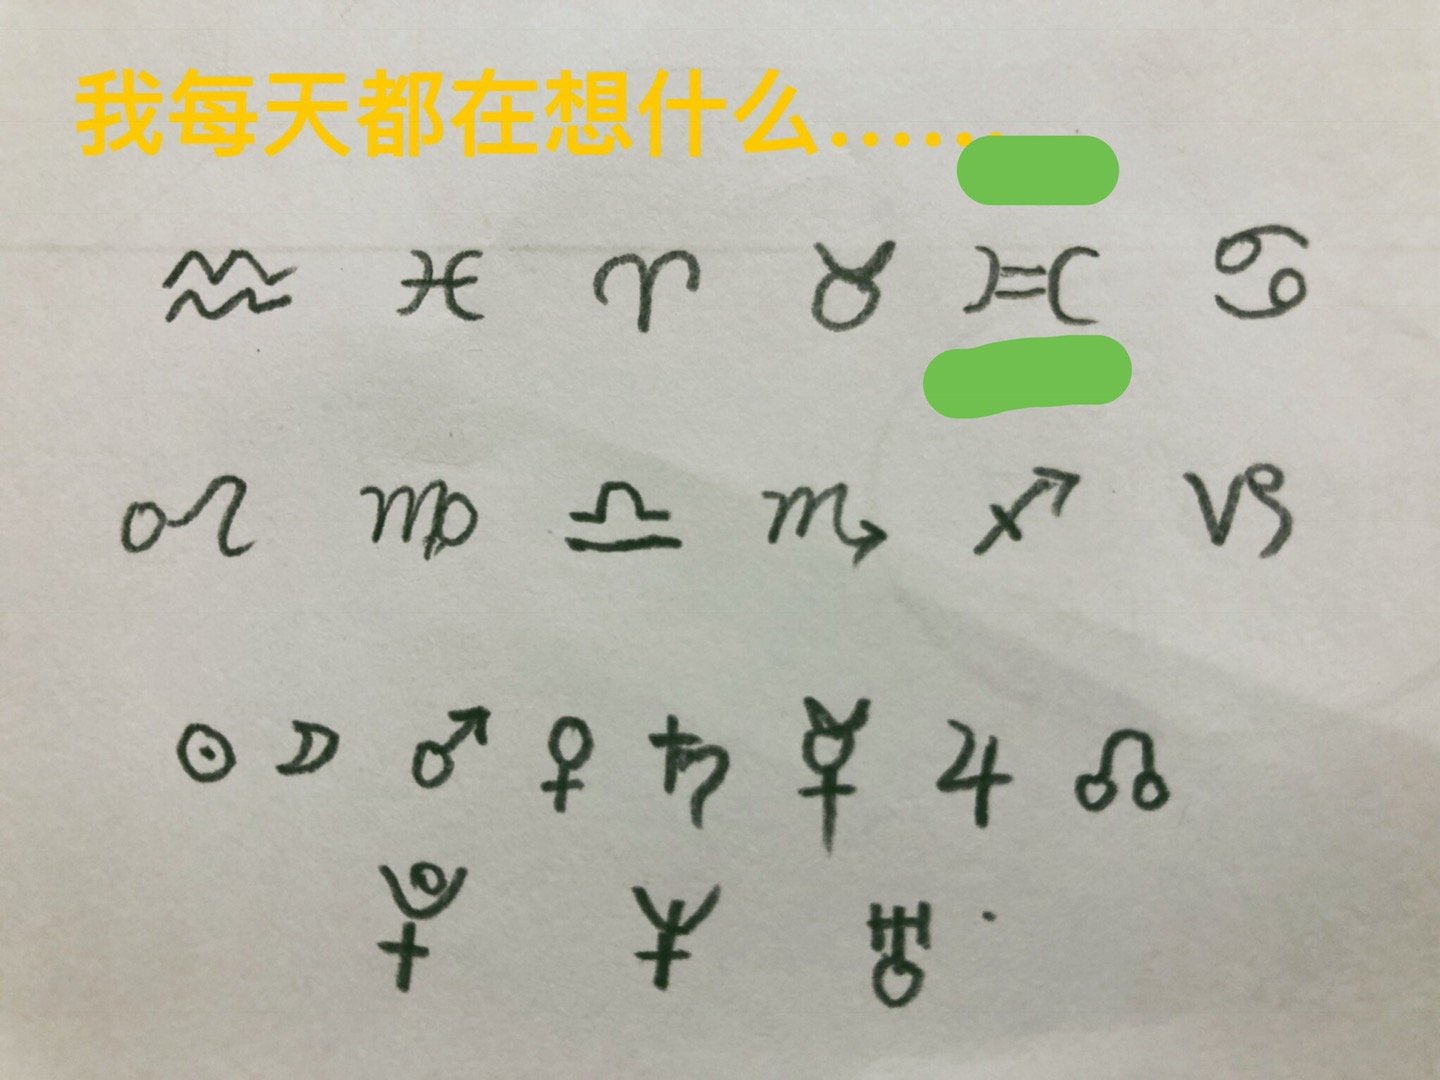 我每天都在想什么......
♒ ♓ ♈ ♉ )=( ♋
♌ ♍ ♎ ♏ ♐ ♑
☉ ☽ ♂ ♀ ♄ ☿ ♃ ☊
⯓ ♆ ♅